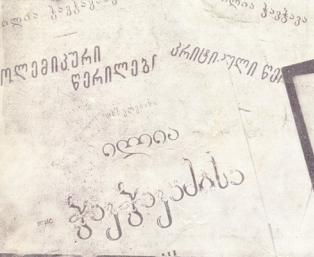 ილია ჭავჭავა
ილია ჭავჭავა
ოლემიკური
წერილები
კრიტიკული წერ
ილია
ჭავჭავაძისა